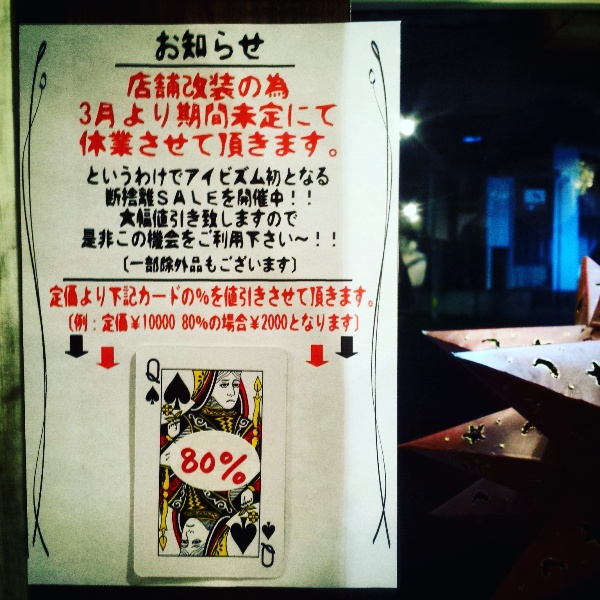 お知らせ
店舗改装の為
3月より期間未定にて
休業させて頂きます。
というわけでアイビズム初となる
断捨離SALEを開催中！！
大幅値引き致しますので
是非この機会をご利用下さい〜！！
〔一部除外品もございます〕
定価より下記カードの%を値引きさせて頂きます。
〔例：定価¥10000 80%の場合¥2000となります〕
Q
80%
Q